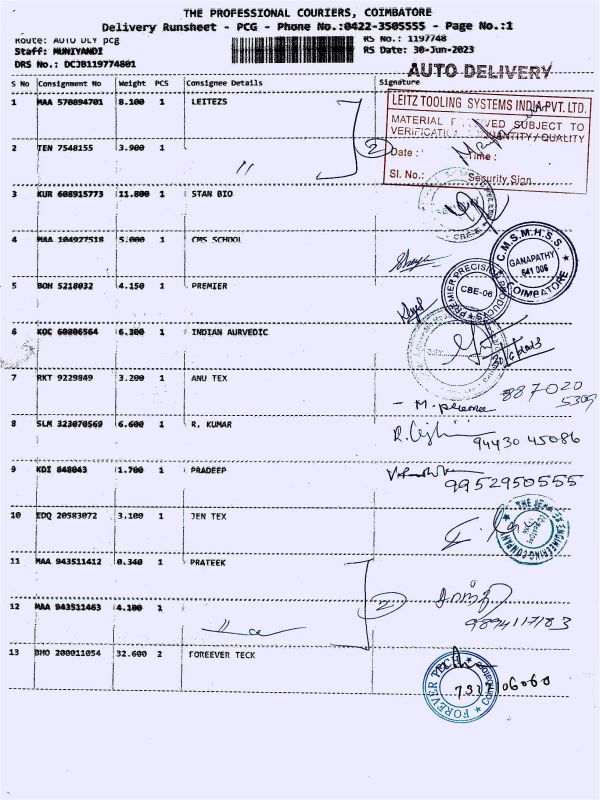 THE PROFESSIONAL COURIERS, COIMBATORE
Delivery Runsheet - PCG - Phone No.:0422-3505555 - Page No.:1
Route: AUTO DLY pcg RS No.: 1197748
Staff: MUNIYANDI RS Date: 30-Jun-2023
DRS No.: DCJB119774801
AUTO DELIVERY
S No Consignment No Weight PCS Consignee Details Signature
1 MAA 570894701 8.100 1 LEITEZS
LEITZ TOOLING SYSTEMS INDIA PVT. LTD.
MATERIAL RECEIVED SUBJECT TO
VERIFICATION QUANTITY / QUALITY
Date : Time :
Sl. No.: Security Sign
2 TEN 7548155 3.900 1 " 2
3 KUR 608915773 11.800 1 STAN BIO
CBE-6
4 MAA 104927518 5.000 1 CMS SCHOOL
C.M.S.M.H.S.S
GANAPATHY
641 006
COIMBATORE
5 BOM 5218032 4.150 1 PREMIER
PREMIER PRECISION PRODUCTS
CBE-06
6 KOC 60806564 6.300 1 INDIAN AURVEDIC
30/6/2023
7 RKT 9229849 3.200 1 ANU TEX
- M. Prema 887020
5309
8 SLM 323070569 6.600 1 R, KUMAR
94430 45086
9 KDI 848043 1.700 1 PRADEEP
9952950555
10 EDQ 20583072 3.100 1 JEN TEX
ENGINEERING COMPANY
11 MAA 943511412 0.340 1 PRATEEK
12 MAA 943511463 4.100 1 2
9894117183
13 BHO 200011054 32.600 2 FOREEVER TECK
FOREVER TECH
7317106060